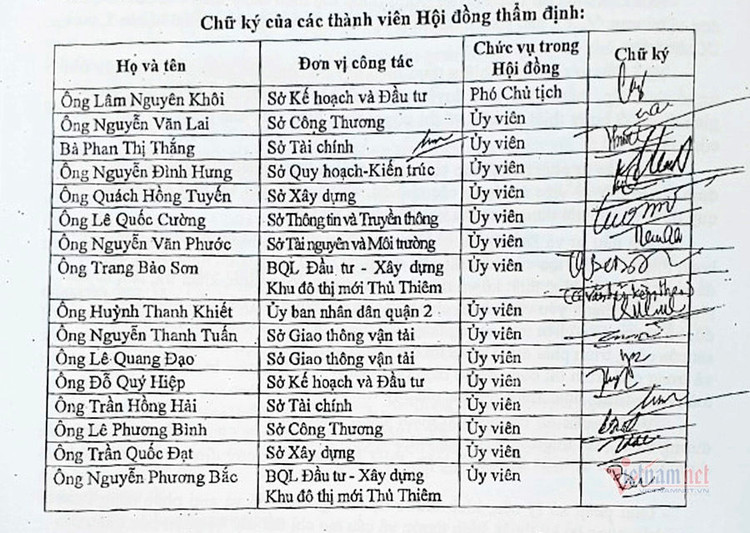 Chữ ký của các thành viên Hội đồng thẩm định:
Họ và tên Đơn vị công tác Chức vụ trong Hội đồng Chữ ký
Ông Lâm Nguyên Khôi Sở Kế hoạch và Đầu tư Phó Chủ tịch
Ông Nguyễn Văn Lai Sở Công Thương Ủy viên
Bà Phan Thị Thắng Sở Tài chính Ủy viên
Ông Nguyễn Đình Hưng Sở Quy hoạch-Kiến trúc Ủy viên
Ông Quách Hồng Tuyến Sở Xây dựng Ủy viên
Ông Lê Quốc Cường Sở Thông tin và Truyền thông Ủy viên
Ông Nguyễn Văn Phước Sở Tài nguyên và Môi trường Ủy viên
Ông Trang Bảo Sơn BQL Đầu tư - Xây dựng Ủy viên
Khu đô thị mới Thủ Thiêm
Ông Huỳnh Thanh Khiết Ủy ban nhân dân quận 2 Ủy viên
Ông Nguyễn Thanh Tuấn Sở Giao thông vận tải Ủy viên
Ông Lê Quang Đạo Sở Giao thông vận tải Ủy viên
Ông Đỗ Quý Hiệp Sở Kế hoạch và Đầu tư Ủy viên
Ông Trần Hồng Hải Sở Tài chính Ủy viên
Ông Lê Phương Bình Sở Công Thương Ủy viên
Ông Trần Quốc Đạt Sở Xây dựng Ủy viên
Ông Nguyễn Phương Bắc BQL Đầu tư - Xây dựng Ủy viên
Khu đô thị mới Thủ Thiêm
Vietnamnet
VIETNAMNET.VN